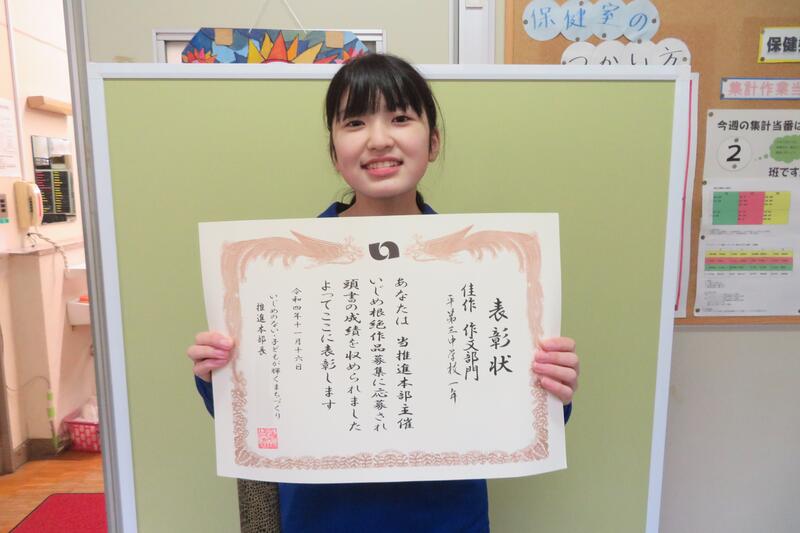 保健室の
つかい方
表彰状
佳作 作文部門
平第三中学校 一年
あなたは 当推進本部主催
いじめ根絶作品募集に応募され
頭書の成績を収められました
よってここに表彰します
令和四年十一月十六日
いじめのない子どもが輝くまちづくり
推進本部長
保健
集計作業当
今週の集計当番は
2
班です